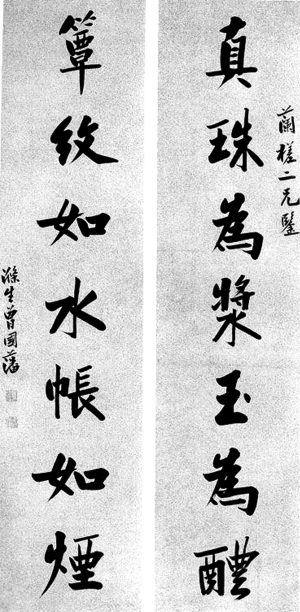 真珠為漿玉為醴
蘭槎二兄鑒
簟紋如水帳如煙
滌生曾國藩